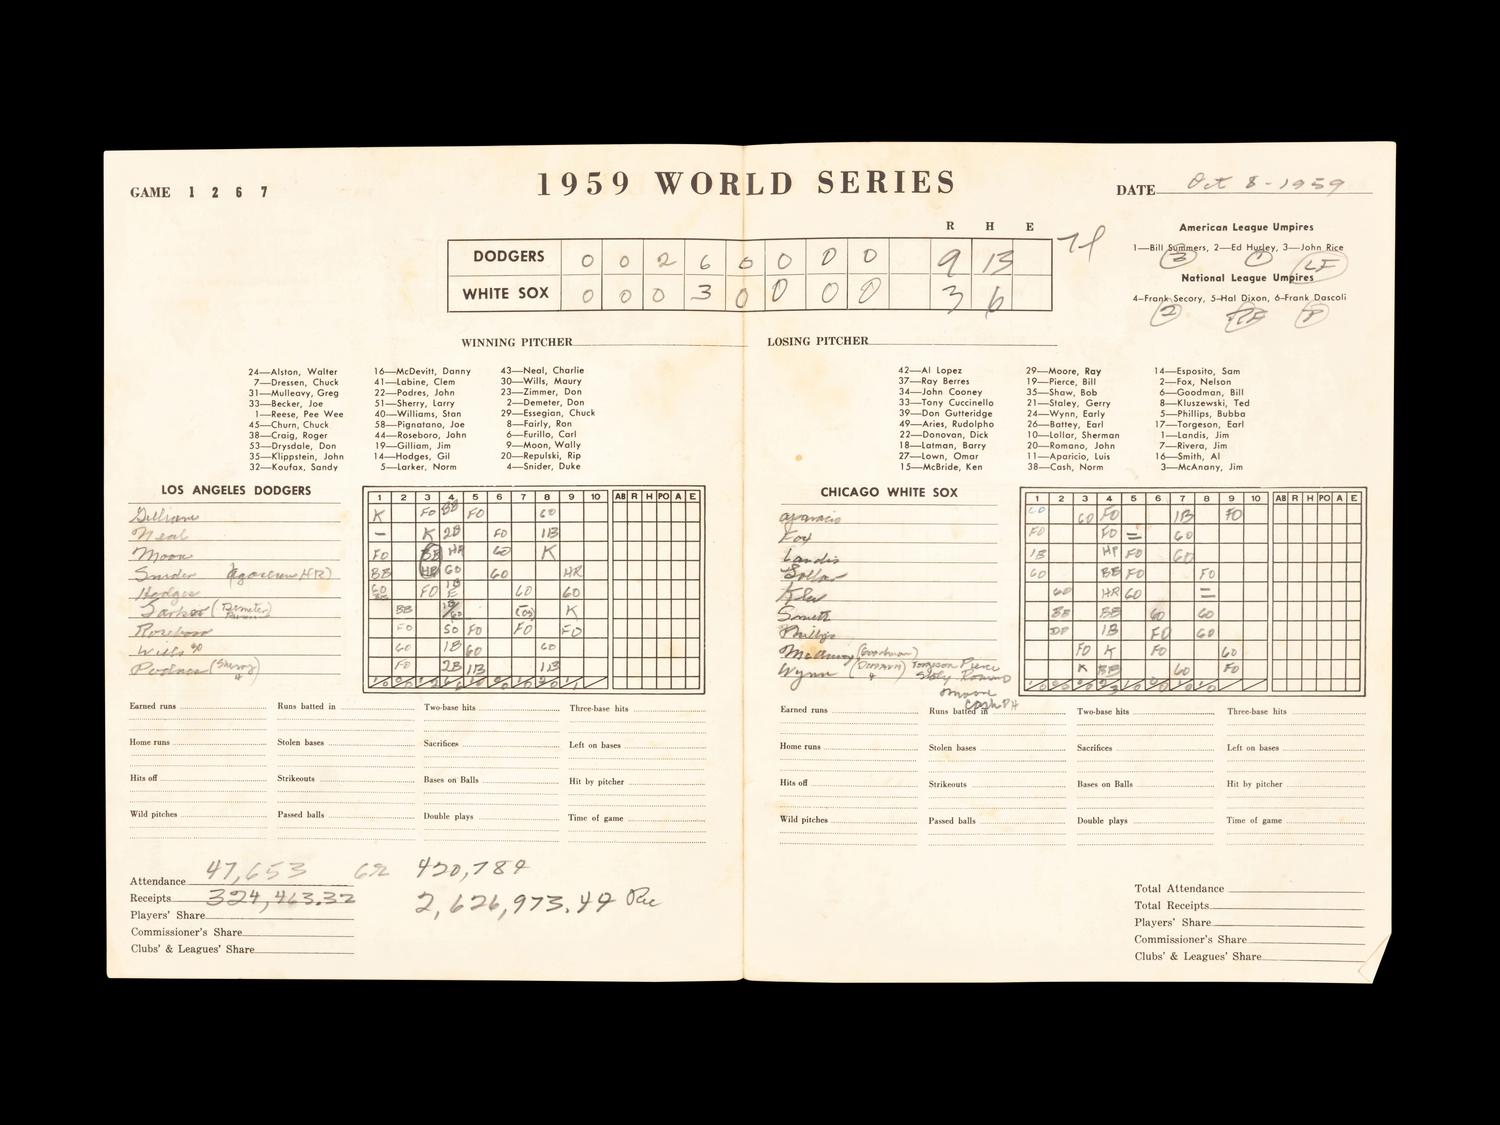 GAME 1 2 6 7
1959 WORLD SERIES
DATE Oct 8-1959
R H E
DODGERS 0 0 2 6 0 0 0 0 9 13
WHITE SOX 0 0 0 3 0 0 0 0 3 6
American League Umpires
1—Bill Summers, 2—Ed Hurley, 3—John Rice
3 1 LF
National League Umpires
4—Frank Secory, 5—Hal Dixon, 6—Frank Dascoli
2 RF P
WINNING PITCHER
LOSING PITCHER
24—Alston, Walter
7—Dressen, Chuck
31—Mulleavy, Greg
33—Becker, Joe
1—Reese, Pee Wee
45—Churn, Chuck
38—Craig, Roger
53—Drysdale, Don
35—Klippstein, John
32—Koufax, Sandy
16—McDevitt, Danny
41—Labine, Clem
22—Podres, John
51—Sherry, Larry
40—Williams, Stan
58—Pignatano, Joe
44—Roseboro, John
19—Gilliam, Jim
14—Hodges, Gil
5—Larker, Norm
43—Neal, Charlie
30—Wills, Maury
23—Zimmer, Don
2—Demeter, Don
29—Essegian, Chuck
8—Fairly, Ron
6—Furillo, Carl
9—Moon, Wally
20—Repulski, Rip
4—Snider, Duke
42—Al Lopez
37—Ray Berres
34—John Cooney
33—Tony Cuccinello
39—Don Gutteridge
49—Aries, Rudolpho
22—Donovan, Dick
18—Latman, Barry
27—Lown, Omar
15—McBride, Ken
29—Moore, Ray
19—Pierce, Bill
35—Shaw, Bob
21—Staley, Gerry
24—Wynn, Early
26—Battey, Earl
10—Lollar, Sherman
20—Romano, John
11—Aparicio, Luis
38—Cash, Norm
14—Esposito, Sam
2—Fox, Nelson
6—Goodman, Bill
8—Kluszewski, Ted
5—Phillips, Bubba
17—Torgeson, Earl
1—Landis, Jim
7—Rivera, Jim
16—Smith, Al
3—McAnany, Jim
LOS ANGELES DODGERS
1 2 3 4 5 6 7 8 9 10 AB R H PO A E
Gilliam K FO BB FO GO
Neal – K 2B FO 1B
Moon FO BB HR GO K
Snider BB HR GO GO HR
Hodges FO GO GO
Larker (Demeter BB K
Roseboro FO SO FO FO FO
Wills GO 1B GO GO
Podres (Sherry) FO 2B 1B 1B
Earned runs
Runs batted in
Two-base hits
Three-base hits
Home runs
Stolen bases
Sacrifices
Left on bases
Hits off
Strikeouts
Bases on Balls
Hit by pitcher
Wild pitches
Passed balls
Double plays
Time of game
47,653 420,784
Attendance
Receipts 324,463.32 2,626,973.49 Rec
Players' Share
Commissioner's Share
Clubs' & Leagues' Share
CHICAGO WHITE SOX
1 2 3 4 5 6 7 8 9 10 AB R H PO A E
Aparicio GO GO FO 1B FO
Fox FO FO = GO
Landis 1B HP FO GO
Lollar GO BB FO FO
Klu GO HR GO =
Smith BB BB GO GO
Phillips DP 1B FO GO
McAnany (Goodman) FO K FO GO
Wynn (Donovan) Torgeson Pierce K BB GO FO
Staly Romano
Moore
Cash PH
Earned runs
Runs batted in
Two-base hits
Three-base hits
Home runs
Stolen bases
Sacrifices
Left on bases
Hits off
Strikeouts
Bases on Balls
Hit by pitcher
Wild pitches
Passed balls
Double plays
Time of game
Total Attendance
Total Receipts
Players' Share
Commissioner's Share
Clubs' & Leagues' Share